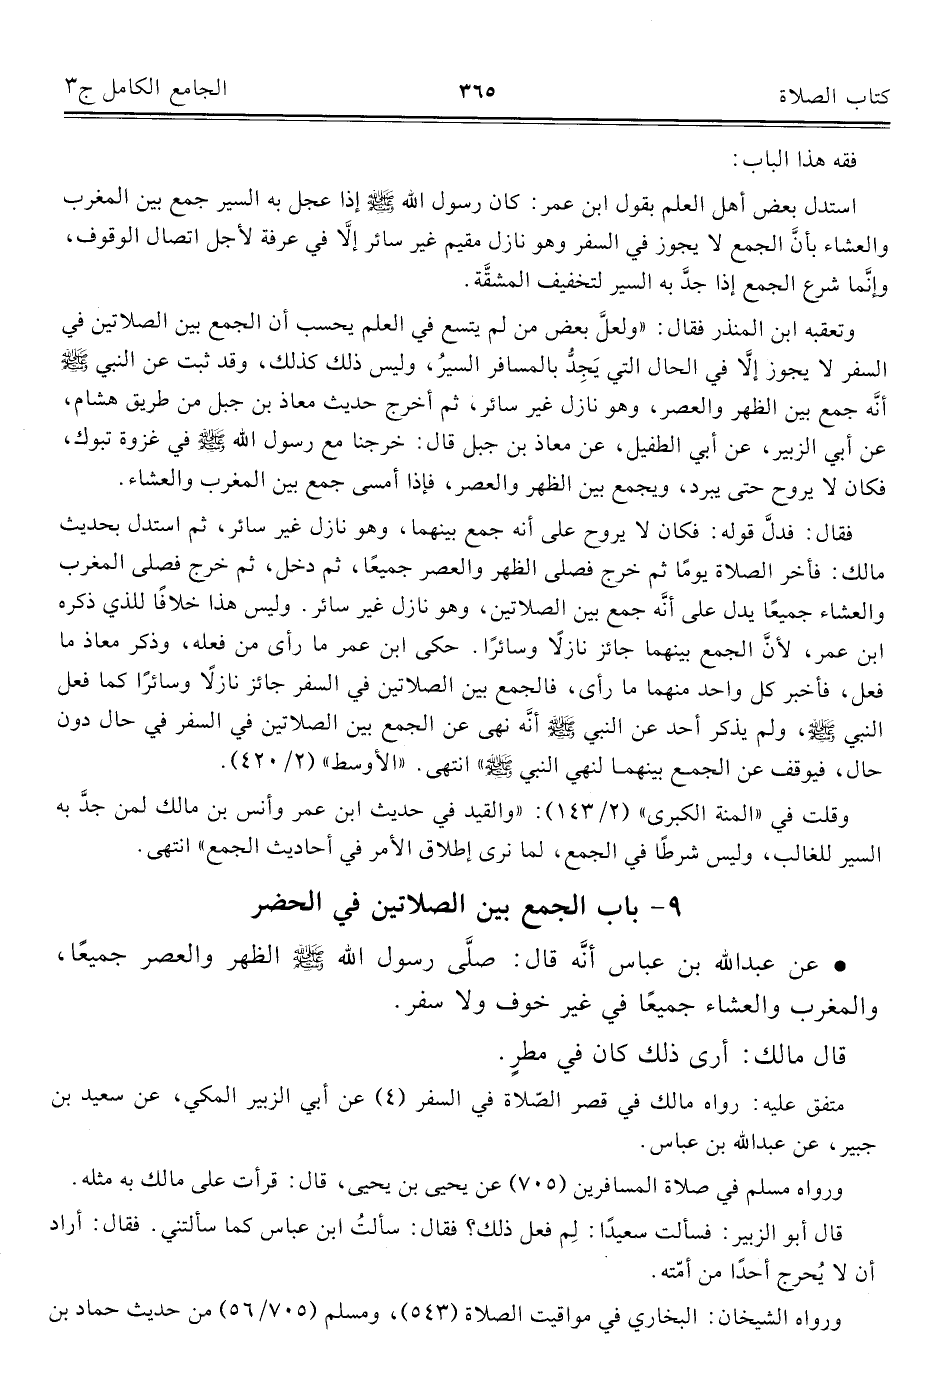 كتاب الصلاة ٣٦٥ الجامع الكامل ج٣
فقه هذا الباب:
استدل بعض أهل العلم بقول ابن عمر: كان رسول الله ﷺ إذا عجل به السير جمع بين المغرب
والعشاء بأنَّ الجمع لا يجوز في السفر وهو نازل مقيم غير سائر إلَّا في عرفة لأجل اتصال الوقوف،
وإنَّما شرع الجمع إذا جدَّ به السير لتخفيف المشقَّة.
وتعقبه ابن المنذر فقال: «ولعلَّ بعض من لم يتسع في العلم يحسب أن الجمع بين الصلاتين في
السفر لا يجوز إلَّا في الحال التي يَجِدُّ بالمسافر السيرُ، وليس ذلك كذلك، وقد ثبت عن النبي ﷺ
أنَّه جمع بين الظهر والعصر، وهو نازل غير سائر، ثم أخرج حديث معاذ بن جبل من طريق هشام،
عن أبي الزبير، عن أبي الطفيل، عن معاذ بن جبل قال: خرجنا مع رسول الله ﷺ في غزوة تبوك،
فكان لا يروح حتى يبرد، ويجمع بين الظهر والعصر، فإذا أمسى جمع بين المغرب والعشاء.
فقال: فدلَّ قوله: فكان لا يروح على أنه جمع بينهما، وهو نازل غير سائر، ثم استدل بحديث
مالك: فأخر الصلاة يومًا ثم خرج فصلى الظهر والعصر جميعًا، ثم دخل، ثم خرج فصلى المغرب
والعشاء جميعًا يدل على أنَّه جمع بين الصلاتين، وهو نازل غير سائر. وليس هذا خلافًا للذي ذكره
ابن عمر، لأنَّ الجمع بينهما جائز نازلًا وسائرًا. حكى ابن عمر ما رأى من فعله، وذكر معاذ ما
فعل، فأخبر كل واحد منهما ما رأى، فالجمع بين الصلاتين في السفر جائز نازلًا وسائرًا كما فعل
النبي ﷺ، ولم يذكر أحد عن النبي ﷺ أنَّه نهى عن الجمع بين الصلاتين في السفر في حال دون
حال، فيوقف عن الجمع بينهما لنهي النبي ﷺ» انتهى. «الأوسط» (٢/ ٤٢٠).
وقلت في «المنة الكبرى» (٢/ ١٤٣): «والقيد في حديث ابن عمر وأنس بن مالك لمن جدَّ به
السير للغالب، وليس شرطًا في الجمع، لما نرى إطلاق الأمر في أحاديث الجمع» انتهى.
٩- باب الجمع بين الصلاتين في الحضر
• عن عبدالله بن عباس أنَّه قال: صلَّى رسول الله ﷺ الظهر والعصر جميعًا،
والمغرب والعشاء جميعًا في غير خوف ولا سفر.
قال مالك: أرى ذلك كان في مطرٍ.
متفق عليه: رواه مالك في قصر الصّلاة في السفر (٤) عن أبي الزبير المكي، عن سعيد بن
جبير، عن عبدالله بن عباس.
ورواه مسلم في صلاة المسافرين (٧٠٥) عن يحيى بن يحيى، قال: قرأت على مالك به مثله.
قال أبو الزبير: فسألت سعيدًا: لِم فعل ذلك؟ فقال: سألتُ ابن عباس كما سألتني. فقال: أراد
أن لا يُحرج أحدًا من أمّته.
ورواه الشيخان: البخاري في مواقيت الصلاة (٥٤٣)، ومسلم (٧٠٥/ ٥٦) من حديث حماد بن